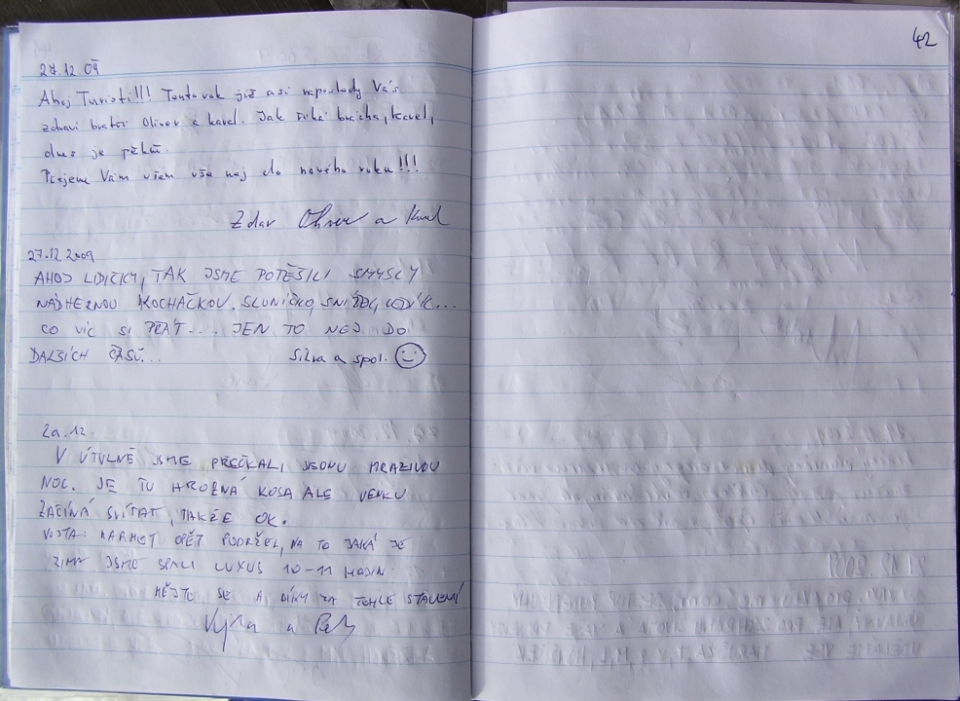 27.12.09
Ahoj Turisti!!! Tentokrát již asi naposledy Vás
zdraví bratři Oliver a Karel. Jak říká brácha, Karel,
dnes je pěkně.
Přejeme Vám všem vše nej do nového roku!!!
Zdar Oliver a Karel
27.12 2009
AHOJ LIDIČKY, TAK JSME POTĚŠILI SMYSLY
NÁDHERNOU KOCHAČKOU. SLUNÍČKO, SNÍŽEK,
CO VÍC SI PŘÁT... JEN TO NEJ DO
DALŠÍCH ČASŮ...
Silva a spol.
29.12.
V ÚTULNĚ JSME PŘEČKALI JEDNU MRAZIVOU
NOC. JE TU HROZNÁ KOSA ALE VENKU
ZAČÍNÁ SVÍTAT, TAKŽE OK.
VOJTA: MARMOT OPĚT PODRŽEL, NA TO JAKÁ JE
ZIMA JSME SPALI LUXUS 10-11 HODIN
MĚJTE SE A DÍKY ZA TOHLE STAVENÍ
Vojta a
42